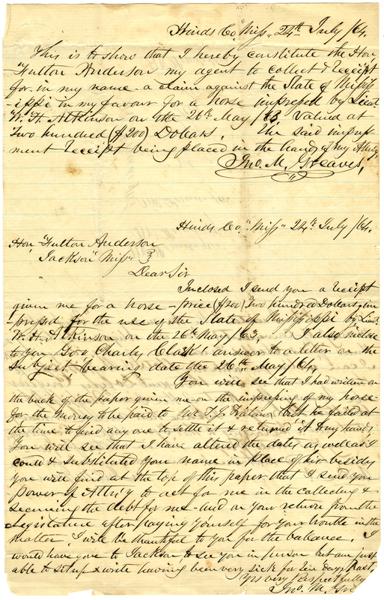 Hinds Co. Miss. 24th July /64.
This is to show that I hereby constitute the Hon
Fulton Anderson my agent to collect & receipt
for, in my name a claim against the State of Missis-
-ippi in my favour for a horse impressed by Lieut
W. H. Atkinson on the 26th May /63, valued at
Two hundred ($200) Dollars. The said impress-
ment receipt being placed in the hands of my Atty
Jno. M. Greaves,
Hinds Co. Miss 24th July /64.
Hon Fulton Anderson
Jackson Miss
Dear Sir
Inclosed I send you a receipt
given me for a horse — price ($200) Two hundred Dollars, im-
-pressed for the use of the State of Mississippi by Lieut
W. H. Atkinson on the 26th May /63. I also inclose
to you Gov Charly Clark's answer to a letter on the
subject bearing date the 26th May /64.
You will see that I had written on
the back of the paper given me on the impressing of my horse
for the money to be paid to Mr. T. J. but he failed at
the time to find any one to settle it & returned it to my hands
You will see that I have altered the dates as well as I
could & substituted your name in place of his besides
you will find at the top of this paper that I send you
Power of Atty to act for me in the collecting &
securing the debt for me and on your return from the
Legislature after paying yourself for your trouble in the
matter I will be thankful to you for the ballance. I
would have gone to Jackson to see you in person but am just
able to set up & write having been very sick for ten days past,
Yrs very respectfully
Jno. M.